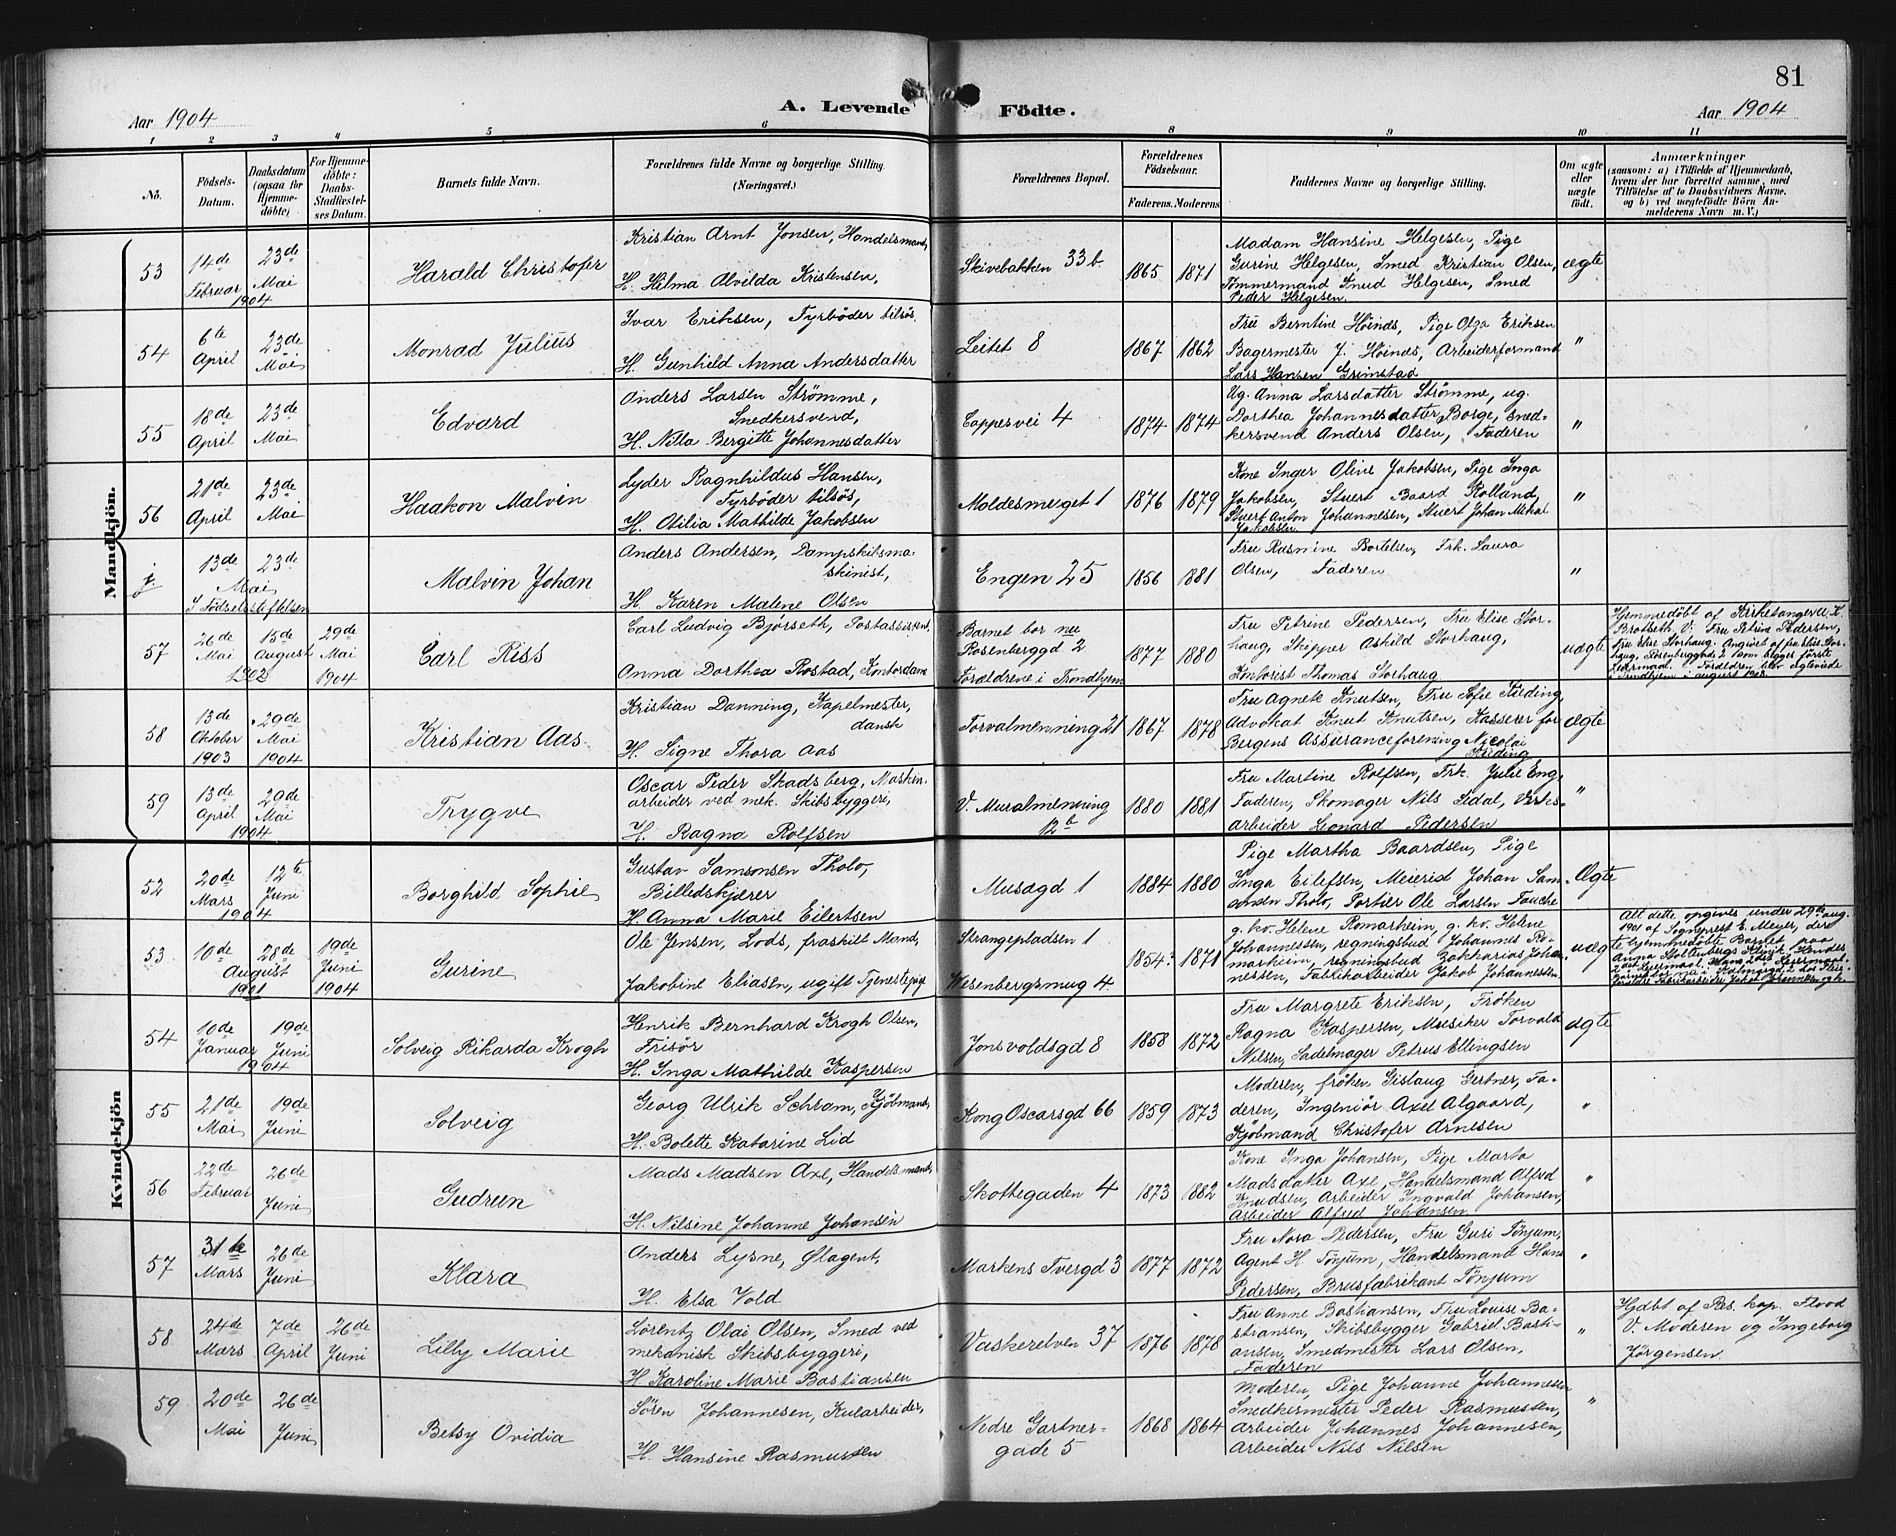 81
Aar 1904
A. Levende
Födte.
Aar 1904
1 2 3 4 5 6 8 9 10 11
No.
Födsels-
Datum.
Daabsdatum
(ogsaa for
Hjemme-
döbte)
For Hjemme-
döbte:
Daabs-
Stadfæstel-
ses Datum.
Barnets fulde Navn.
Forældrenes fulde Navne og borgerlige Stilling.
(Næringsvei.)
Forældrenes Bopæl.
Forældrenes
Födselsaar.
Faderens. Moderens
Faddernes Navne og borgerlige Stilling.
Om ægte
eller
uægte
födt.
Anmærkninger
(saasom: a) i Tilfælde af Hjemmedaab,
hvem der har forrettet samme, med
Tilföielse af to Daabsvidners Navne,
og b) ved uægtefödte Börn An-
melderens Navn m. V.)
Mandkjön.
53
14de
Februar
1904
23de
Mai
Harald Christofer
Kristian Arnt Jonsen, Handelsmand,
H. Hilma Alvilda Kristensen,
Skivebakken 33b.
1865 1871
Madam Hansine Helgesen, Pige
Gurine Helgesen, Smed Kristian Olsen,
Tömmermand Knud Helgesen, Smed
Peder Helgesen.
ægte
54
6te
April
23de
Mai
Monrad Julius
Ivar Eriksen, Fyrböder tilsös.
H. Gunhild Anna Andersdatter
Leitet 8
1867 1862
Fru Berntine Höinds, Pige Olga Eriksen
Bagermester J. Höinds, Arbeiderformand
Lars Hansen Grimstad
"
55
18de
April
23de
Mai
Edvard
Anders Larsen Strømme,
Snedkersvend,
H. Nilla Bergitte Johannesdatter
Cappesvei 4
1874 1874
Ug. Anna Larsdatter Strømme, ug.
Dorthea Johannesdatter Borge, Sned-
kersvend Anders Olsen, Faderen
"
56
21de
April
23de
Mai
Haakon Malvin
Lyder Ragnhildus Hansen,
Fyrböder tilsös,
H. Otilia Mathilde Jakobsen
Moldesmuget 1
1876 1879
Kone Inger Oline Jakobsen, Pige Inga
Jakobsen, Stuert Baard Rolland,
Stuert Anton Johannesen, Stuert Johan Mikal
Jakobsen
"
13de
Mai
I Fødselsstiftelsen
23de
Malvin Johan
Anders Andersen, Dampskibsma-
skinist,
H. Karen Malene Olsen
Engen 25
1856 1881
Fru Rasmine Bertelsen, Frk. Laura
Olsen, Faderen
"
57
26de
Mai
15de
August
1902
29de
Mai
1904
Carl Riss
Carl Ludvig Bjørseth, Postassistent,
Anna Dorthea Rostad, Kontordame
Barnet bor nu
Rosenberggd 2
Forældrene i Trondhjem
1877 1880
Fru Petrine Pedersen, Fru Elise Stor-
haug, Skipper Askild Storhaug,
Kontorist Thomas Storhaug
uægte
Hjemmedøbt af Kirkesanger
Brotseth. V: Fru Petrine Pedersen,
Fru Elise Storhaug.
58
13de
Oktober
1903
29de
Mai
1904
Kristian Aas.
Kristian Danning, Kapelmester,
dansk
H. Signe Thora Aas
Torvalmenning 21
1867 1878
Fru Agnete Knutsen, Fru Sofie Kieding,
Advokat Knut Knutsen, Kasserer for
Bergens Assuranceforening Nicolai
Kieding
ægte
59
13de
April
1904
29de
Mai
Trygve
Oscar Peder Skadsberg, Maskin-
arbeider ved mek. Skibsbyggeri,
H. Ragna Rolfsen
V. Muralmenning
12b
1880 1881
Fru Martine Rolfsen, Frk. Julie Eng,
Faderen, Skomager Nils Sedal, Verks-
arbeider Leonard Pedersen
"
Kvindekjön
52
20de
Mars
1904
12te
Juni
Borghild Sophie
Gustav Samsonsen Tholo,
Billedskjærer
H. Anna Marie Eilertsen
Musægd 1
1884 1880
Pige Martha Baardsen, Pige
Inga Eilefsen, Meierist Johan Sam-
sonsen Tholo, Portier Ole Larsen Fauche
Ægte
53
10de
August
1901
28de
19de
Juni
1904
Gurine
Ole Jensen, Lods, fraskilt Mand,
Jakobine Eliasen, ugift Tjenestepige
Strangepladsen 1
Wesenbergsmug 4.
1854? 1871
g. kv. Helene Romarheim, g. kv. Helene
Johannessen, regningsbud Johannes Ro-
marheim, regningsbud Zakkarias Johan-
nessen, Fabrikarbeider Jakob Johannessen
uægte
Alt dette opgives under 29de aug.
1901 af Sogneprest E. Meyer, der
hjemmedøbte Barnet paa
54
10de
Januar
1904
19de
Juni
Solveig Rikarda Krogh
Henrik Bernhard Krogh Olsen,
Frisör
H. Inga Mathilde Kaspersen
Jonsvoldsgd 8
1858 1872
Fru Margrete Eriksen, Fröken
Ragna Kaspersen, Musiker Torvald
Nilsen, Sadelmager Petrus Ellingsen
ægte
55
21de
Mai
19de
Juni
Solveig
Georg Ulrik Schram, Kjöbmand,
H. Bolette Katarine Lid
Kong Oscarsgd 66
1859 1873
Moderen, fröken Gislaug Gertner, Fa-
deren, Ingeniör Axel Algaard,
Kjöbmand Christofer Arnesen
"
56
22de
Februar
26de
Juni
Gudrun
Mads Madsen Axe, Handelsmand,
H. Nilsine Johanne Johansen
Skottegaden 4
1873 1882
Kone Inga Johansen, Pige Marta
Madsdatter Axe, Handelsmand Alfred
Knudsen, Arbeider Ingvald Johansen,
Arbeider Alfred Johansen
"
57
31te
Mars
26de
Juni
Klara
Anders Lysne, Ølagent,
H. Elsa Vold
Markens Tvergd 3
1877 1872
Fru Nora Pedersen, Fru Guri Tönjum,
Agent H. Tönjum, Handelsmand Hans
Pedersen, Brusfabrikant Tönjum
"
58
24de
Mars
7de
April
26de
Juni
Lilly Marie
Lorentz Olai Olsen, Smed ved
mekanisk Skibsbyggeri,
H. Karoline Marie Bastiansen
Vaskerelven 37
1876 1878
Fru Anne Bastiansen, Fru Louise Ba-
stiansen, Skibsbygger Gabriel Basti-
ansen, Smedmester Lars Olsen,
Faderen
"
Hjdbt af Res. kap. Flood
V. Moderen og Ingeborg
Jörgensen.
59
20de
Mai
26de
Juni
Betsy Ovidia
Sören Johannesen, Kularbeider,
H. Hansine Rasmussen
Nedre Gartner-
gade 5
1868 1864
Moderen, Pige Johanne Johannesen
Snedkermester Peder Rasmussen,
Arbeider Johannes Johannesen,
Arbeider Nils Nilsen
"